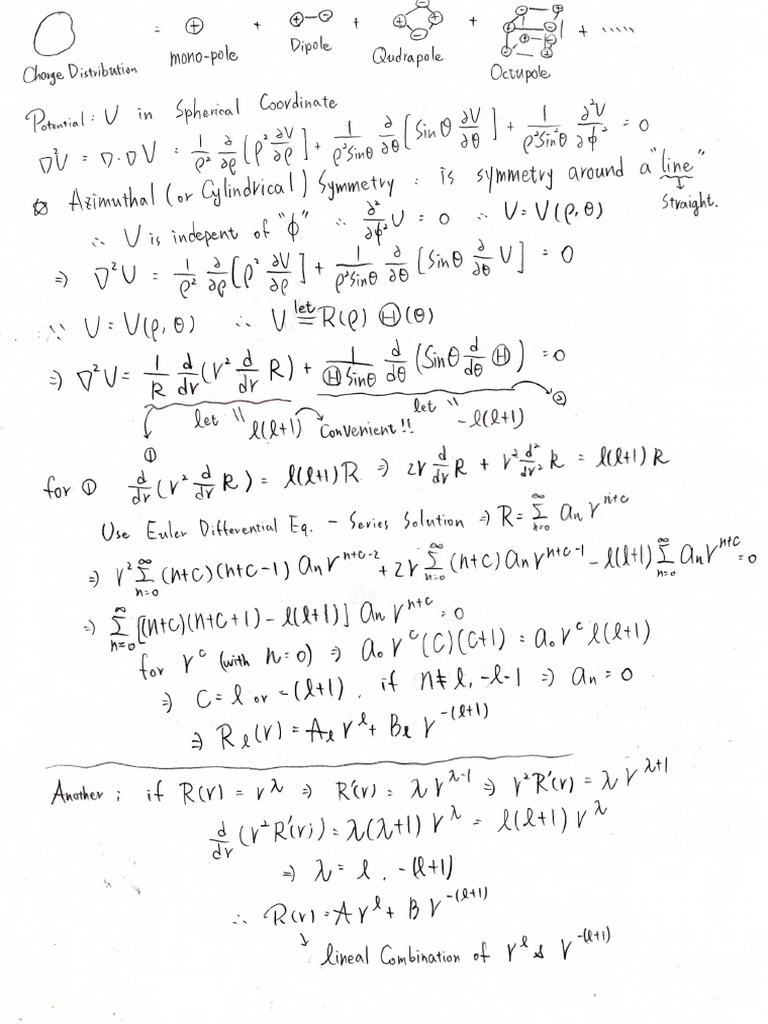 = ⊕ + ⊕–⊖ + + + .....
Charge Distribution mono-pole Dipole Qudrapole Octupole
Potential : V in Spherical Coordinate
∇²V = ∇·∇V = 1/ρ² ∂/∂ρ [ρ² ∂V/∂ρ] + 1/(ρ² sinθ) ∂/∂θ [Sinθ ∂V/∂θ] + 1/(ρ² Sin²θ) ∂²V/∂φ² = 0
Azimuthal (or Cylindrical) Symmetry : is symmetry around a "line"
Straight.
∴ V is indepent of "φ" ∴ ∂²/∂φ² V = 0 ∴ V = V(ρ, θ)
⇒ ∇²V = 1/ρ² ∂/∂ρ [ρ² ∂V/∂ρ] + 1/(ρ² sinθ) ∂/∂θ [Sinθ ∂/∂θ V] = 0
∵ V = V(ρ, θ) ∴ V let= R(ρ) Θ(θ)
⇒ ∇²V = 1/R d/dr (r² d/dr R) + 1/(Θ Sinθ) d/dθ (Sinθ d/dθ Θ) = 0
① let = l(l+1) Convenient!! let = -l(l+1) ②
for ① d/dr (r² d/dr R) = l(l+1)R ⇒ 2r d/dr R + r² d²/dr² R = l(l+1) R
Use Euler Differential Eq. – Series Solution ⇒ R = Σ_{n=0}^∞ aₙ r^{n+c}
⇒ r² Σ_{n=0}^∞ (n+c)(n+c-1) aₙ r^{n+c-2} + 2r Σ_{n=0}^∞ (n+c) aₙ r^{n+c-1} – l(l+1) Σ_{n=0}^∞ aₙ r^{n+c} = 0
⇒ Σ_{n=0}^∞ [(n+c)(n+c+1) – l(l+1)] aₙ r^{n+c} = 0
for r^c (with n=0) ⇒ a₀ r^c (c)(c+1) = a₀ r^c l(l+1)
⇒ C = l or -(l+1), if n ≠ l, -l-1 ⇒ aₙ = 0
⇒ R_l(r) = A_l r^l + B_l r^{-(l+1)}
Another ; if R(r) = r^λ ⇒ R'(r) = λ r^{λ-1} ⇒ r² R'(r) = λ r^{λ+1}
d/dr (r² R'(r)) = λ(λ+1) r^λ = l(l+1) r^λ
⇒ λ = l , -(l+1)
∴ R(r) = A r^l + B r^{-(l+1)}
lineal Combination of r^l & r^{-(l+1)}